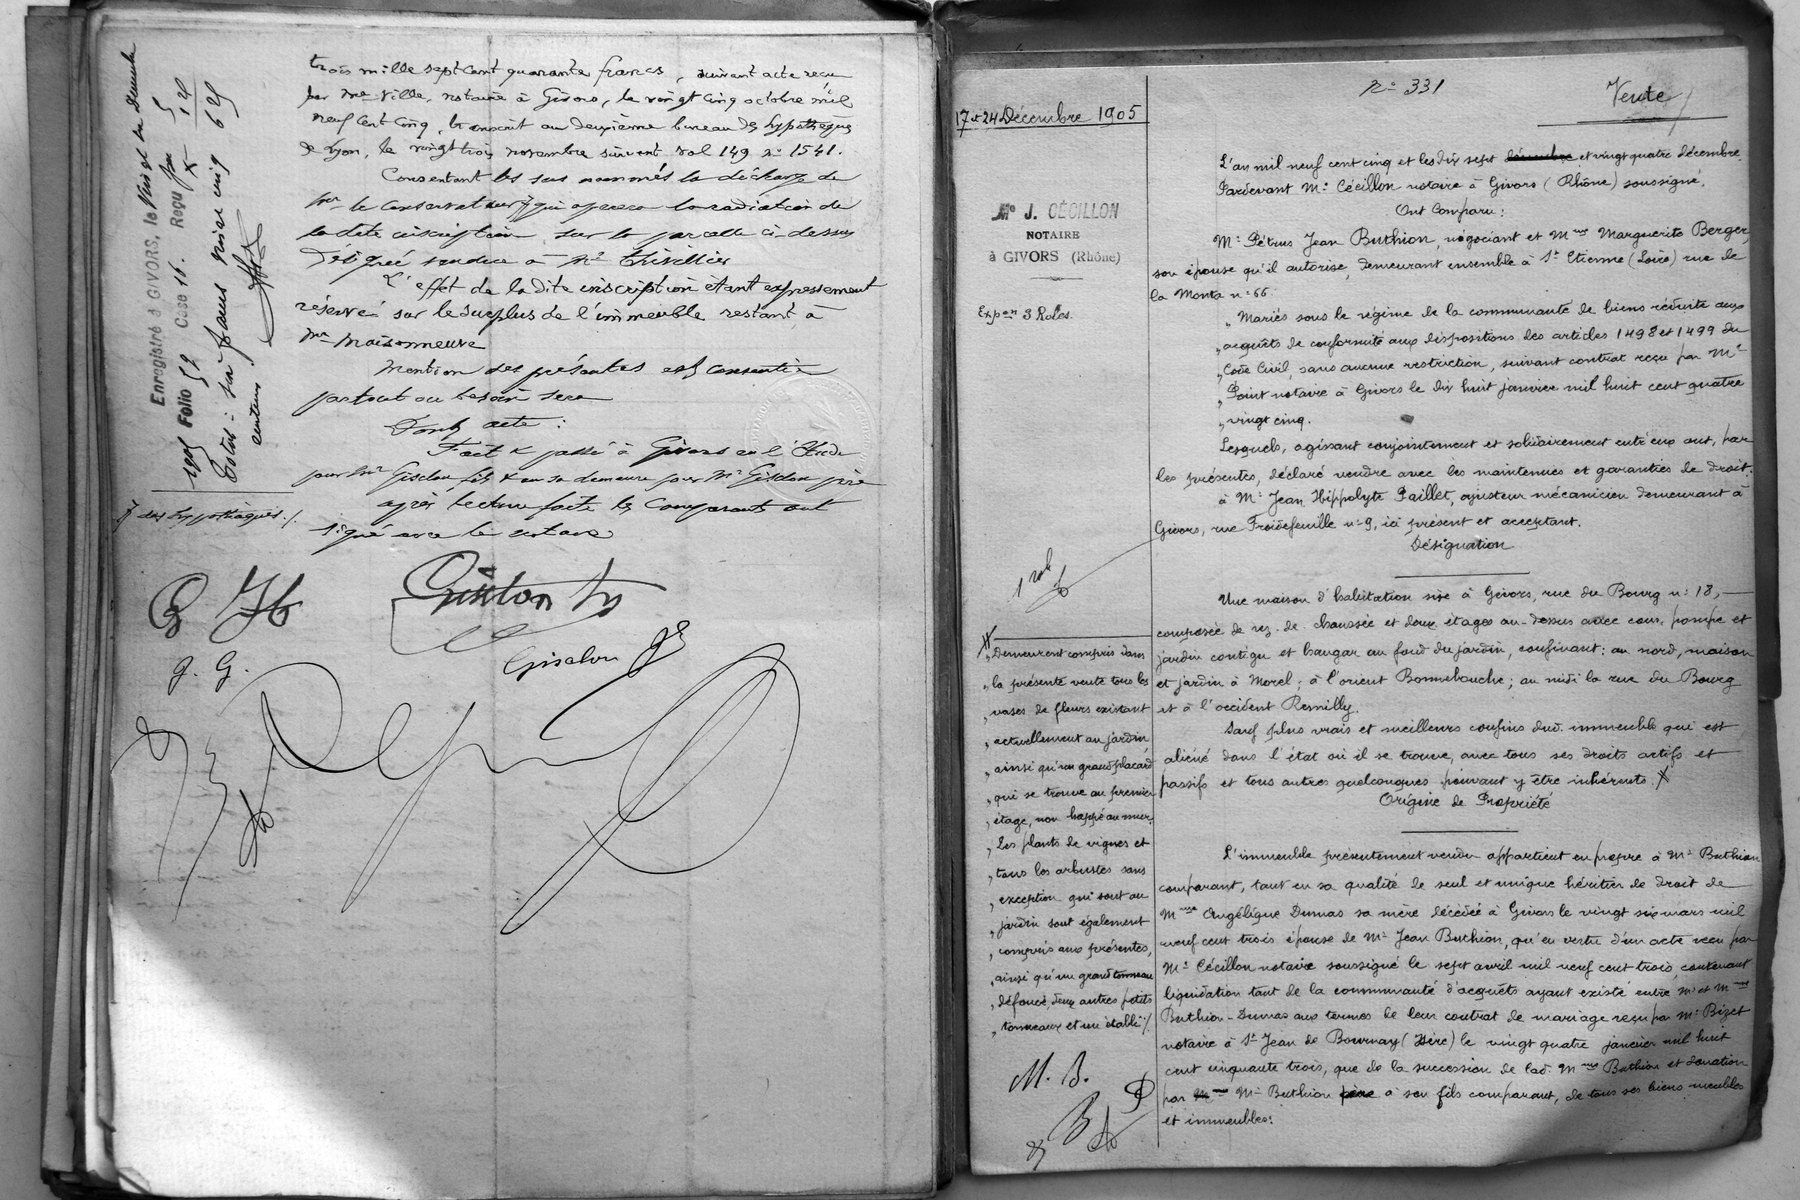 trois mille sept cent quarante francs, suivant acte reçu
par Me Ville, notaire à Givors, le vingt cinq octobre mil
neuf cent cinq, transcrit au deuxième bureau des hypothèques
de Lyon, le vingt trois novembre suivant vol 149 no 1541.
Consentant les sus nommés la décharge de
Mr le Conservateur qui opérera la radiation de
la dite inscription sur la parcelle ci-dessus
désignée vendue à Mr
L'effet de la dite inscription étant expressément
réservé sur le surplus de l'immeuble restant à
Mr Maisonneuve
Mention des présentes est consentie
partout où besoin sera
Dont acte :
Fait & passé à Givors en l'Étude
pour Mr Gisclon fils & en sa demeure pour Mr Gisclon père
après lecture faite les Comparants ont
signé avec le notaire
Enregistré à GIVORS, le
1905 Folio 52 Case 16. Reçu
des hypothèques ./.
J. G.
Gisclon
17 et 24 Décembre 1905
No 331
Vente
Me J. CÉCILLON
NOTAIRE
à GIVORS (Rhône)
Expon 3 Roles.
L'an mil neuf cent cinq et les dix sept décembre et vingt quatre décembre.
Pardevant Me Cécillon notaire à Givors (Rhône) soussigné.
Ont Comparu :
Mr Pétrus Jean Buthion, négociant et Mme Marguerite Berger,
son épouse qu'il autorise, demeurant ensemble à St Etienne (Loire) rue de
la Monta no 66
„ Mariés sous le régime de la communauté de biens réduite aux
„ acquêts de conformité aux dispositions des articles 1498 et 1499 du
„ Code Civil sans aucune restriction, suivant contrat reçu par Me
„ Point notaire à Givors le dix huit janvier mil huit cent quatre
„ vingt cinq.
Lesquels, agissant conjointement et solidairement entre eux ont, par
les présentes, déclaré vendre avec les maintenues et garanties de droit.
à Mr Jean Hippolyte Paillet, ajusteur mécanicien demeurant à
Givors, rue Froidefeuille no 9, ici présent et acceptant.
Désignation
Une maison d'habitation sise à Givors, rue du Bourg no 18,
composée de rez-de-chaussée et deux étages au-dessus avec cour, pompe et
jardin contigu et hangar au fond du jardin, confinant : au nord, maison
et jardin à Morel ; à l'orient Bonnebouche ; au midi la rue du Bourg
et à l'occident Remilly.
Sauf plus vrais et meilleurs confins dud. immeuble qui est
aliéné dans l'état où il se trouve, avec tous ses droits actifs et
passifs et tous autres quelconques pouvant y être inhérents.
Origine de Propriété
L'immeuble présentement vendu appartient en propre à Mr Buthion
comparant, tant en sa qualité de seul et unique héritier de droit de
Mme Angélique Dumas sa mère décédée à Givors le vingt six mars mil
neuf cent trois épouse de Mr Jean Buthion, qu'en vertu d'un acte reçu par
Me Cécillon notaire soussigné le sept avril mil neuf cent trois, contenant
liquidation tant de la communauté d'acquêts ayant existé entre Mr et Mme
Buthion-Dumas aux termes de leur contrat de mariage reçu par Me Bizet
notaire à St Jean de Bournay (Isère) le vingt quatre janvier mil huit
cent cinquante trois, que de la succession de lad. Mme Buthion et donation
par Mme Mr Buthion père à son fils comparant, de tous ses biens meubles
et immeubles:
1 role
„ Demeurent compris dans
„ la présente vente tous les
„ vases de fleurs existant
„ actuellement au jardin
„ ainsi qu'un grand placard
„ qui se trouve au premier
„ étage, non happé au mur.
„ Les plants de vignes et
„ tous les arbustes sans
„ exception qui sont au
„ jardin sont également
„ compris aux présentes,
„ ainsi qu'un grand tonneau
„ défoncé, deux autres petits
„ tonneaux et un établi ./.
M. B.